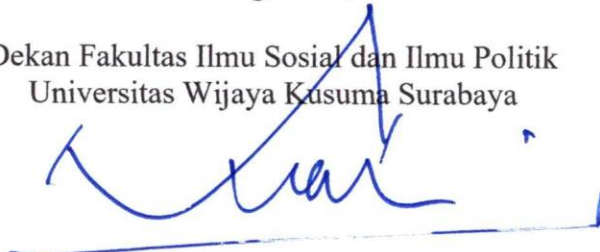 Dekan Fakultas Ilmu Sosial dan Ilmu Politik
Universitas Wijaya Kusuma Surabaya